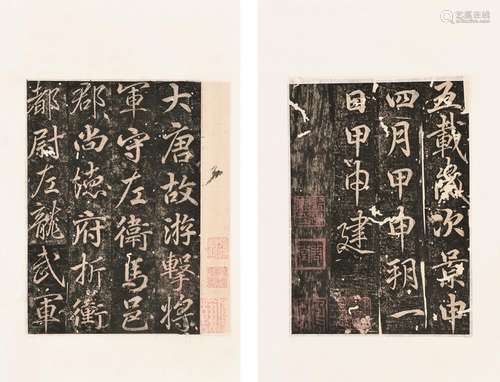 大唐故游擊將
軍守左衛馬邑
郡尚德府折衝
都尉左龍武軍
五載歲次景申
四月甲申朔一
日甲申建
艺狐在线